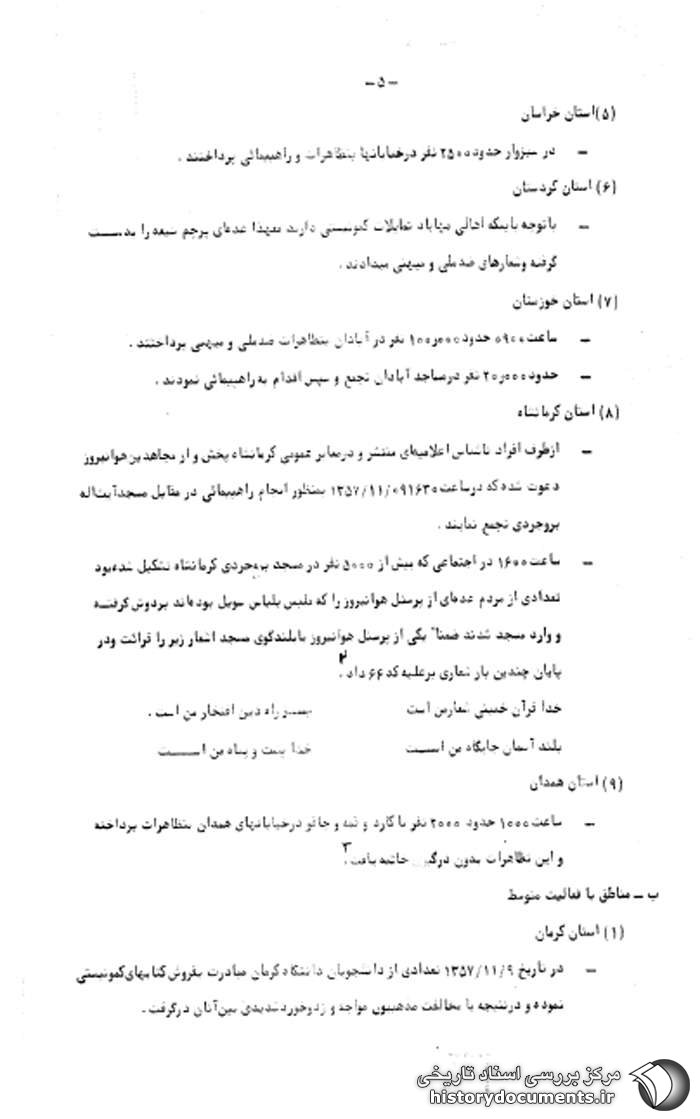 ـ ۵ ـ
(۵) استان خراسان
ـ در سبزوار حدود ۲۵۰۰ نفر درخیابانها بتظاهرات و راهپیمائی پرداختند .
(۶) استان کردستان
ـ باتوجه باینکه اهالی مهاباد تمایلات کمونیستی دارند معهذا عده‌ای پرچم شیعه را بدست
گرفته وشعارهای ضدملی و میهنی میدادند .
(۷) استان خوزستان
ـ ساعت ۰۹۰۰ حدود ۱۰۰٫۰۰۰ نفر در آبادان بتظاهرات ضدملی و میهنی پرداختند .
ـ حدود ۲۰٫۰۰۰ نفر درمساجد آبادان تجمع و سپس اقدام به راهپیمائی نمودند .
(۸) استان کرمانشاه
ـ ازطرف افراد ناشناس اعلامیه‌ای منتشر و درمعابر عمومی کرمانشاه پخش و از مجاهدین هوانیروز
دعوت شده که درساعت ۱۶۳۰ ۱۳۵۷/۱۱/۰۹ بمنظور انجام راهپیمائی در مقابل مسجد آیت‌اله
بروجردی تجمع نمایند .
ـ ساعت ۱۶۰۰ در اجتماعی که بیش از ۵۰۰۰ نفر در مسجد بروجردی کرمانشاه تشکیل شده‌بود
تعدادی از مردم عده‌ای از پرسنل هوانیروز را که ملبس بلباس سویل بوده‌اند بردوش گرفته
و وارد مسجد شدند ضمنا" یکی از پرسنل هوانیروز بابلندگوی مسجد اشعار زیر را قرائت ودر
پایان چندین بار شعاری برعلیه کد ۶۶ داد .۲
خدا قرآن خمینی شعارمن است راه دین افتخار من است .
بلند آسمان جایگاه من است خدا پشت و پناه من است
(۹) استان همدان
ـ ساعت ۱۰۰۰ حدود ۲۰۰۰ نفر با کارد و قمه و چاقو درخیابانهای همدان بتظاهرات پرداخته
و این تظاهرات بدون درگیری خاتمه یافت .۳
ب ـ مناطق با فعالیت متوسط
(۱) استان کرمان
ـ در تاریخ ۱۳۵۷/۱۱/۹ تعدادی از دانشجویان دانشگاه کرمان مبادرت بفروش کتابهای کمونیستی
نموده و درنتیجه با مخالفت مذهبیون مواجه و زدوخوردشدیدی بین آنان درگرفت .
مرکز بررسی اسناد تاریخی
historydocuments.ir